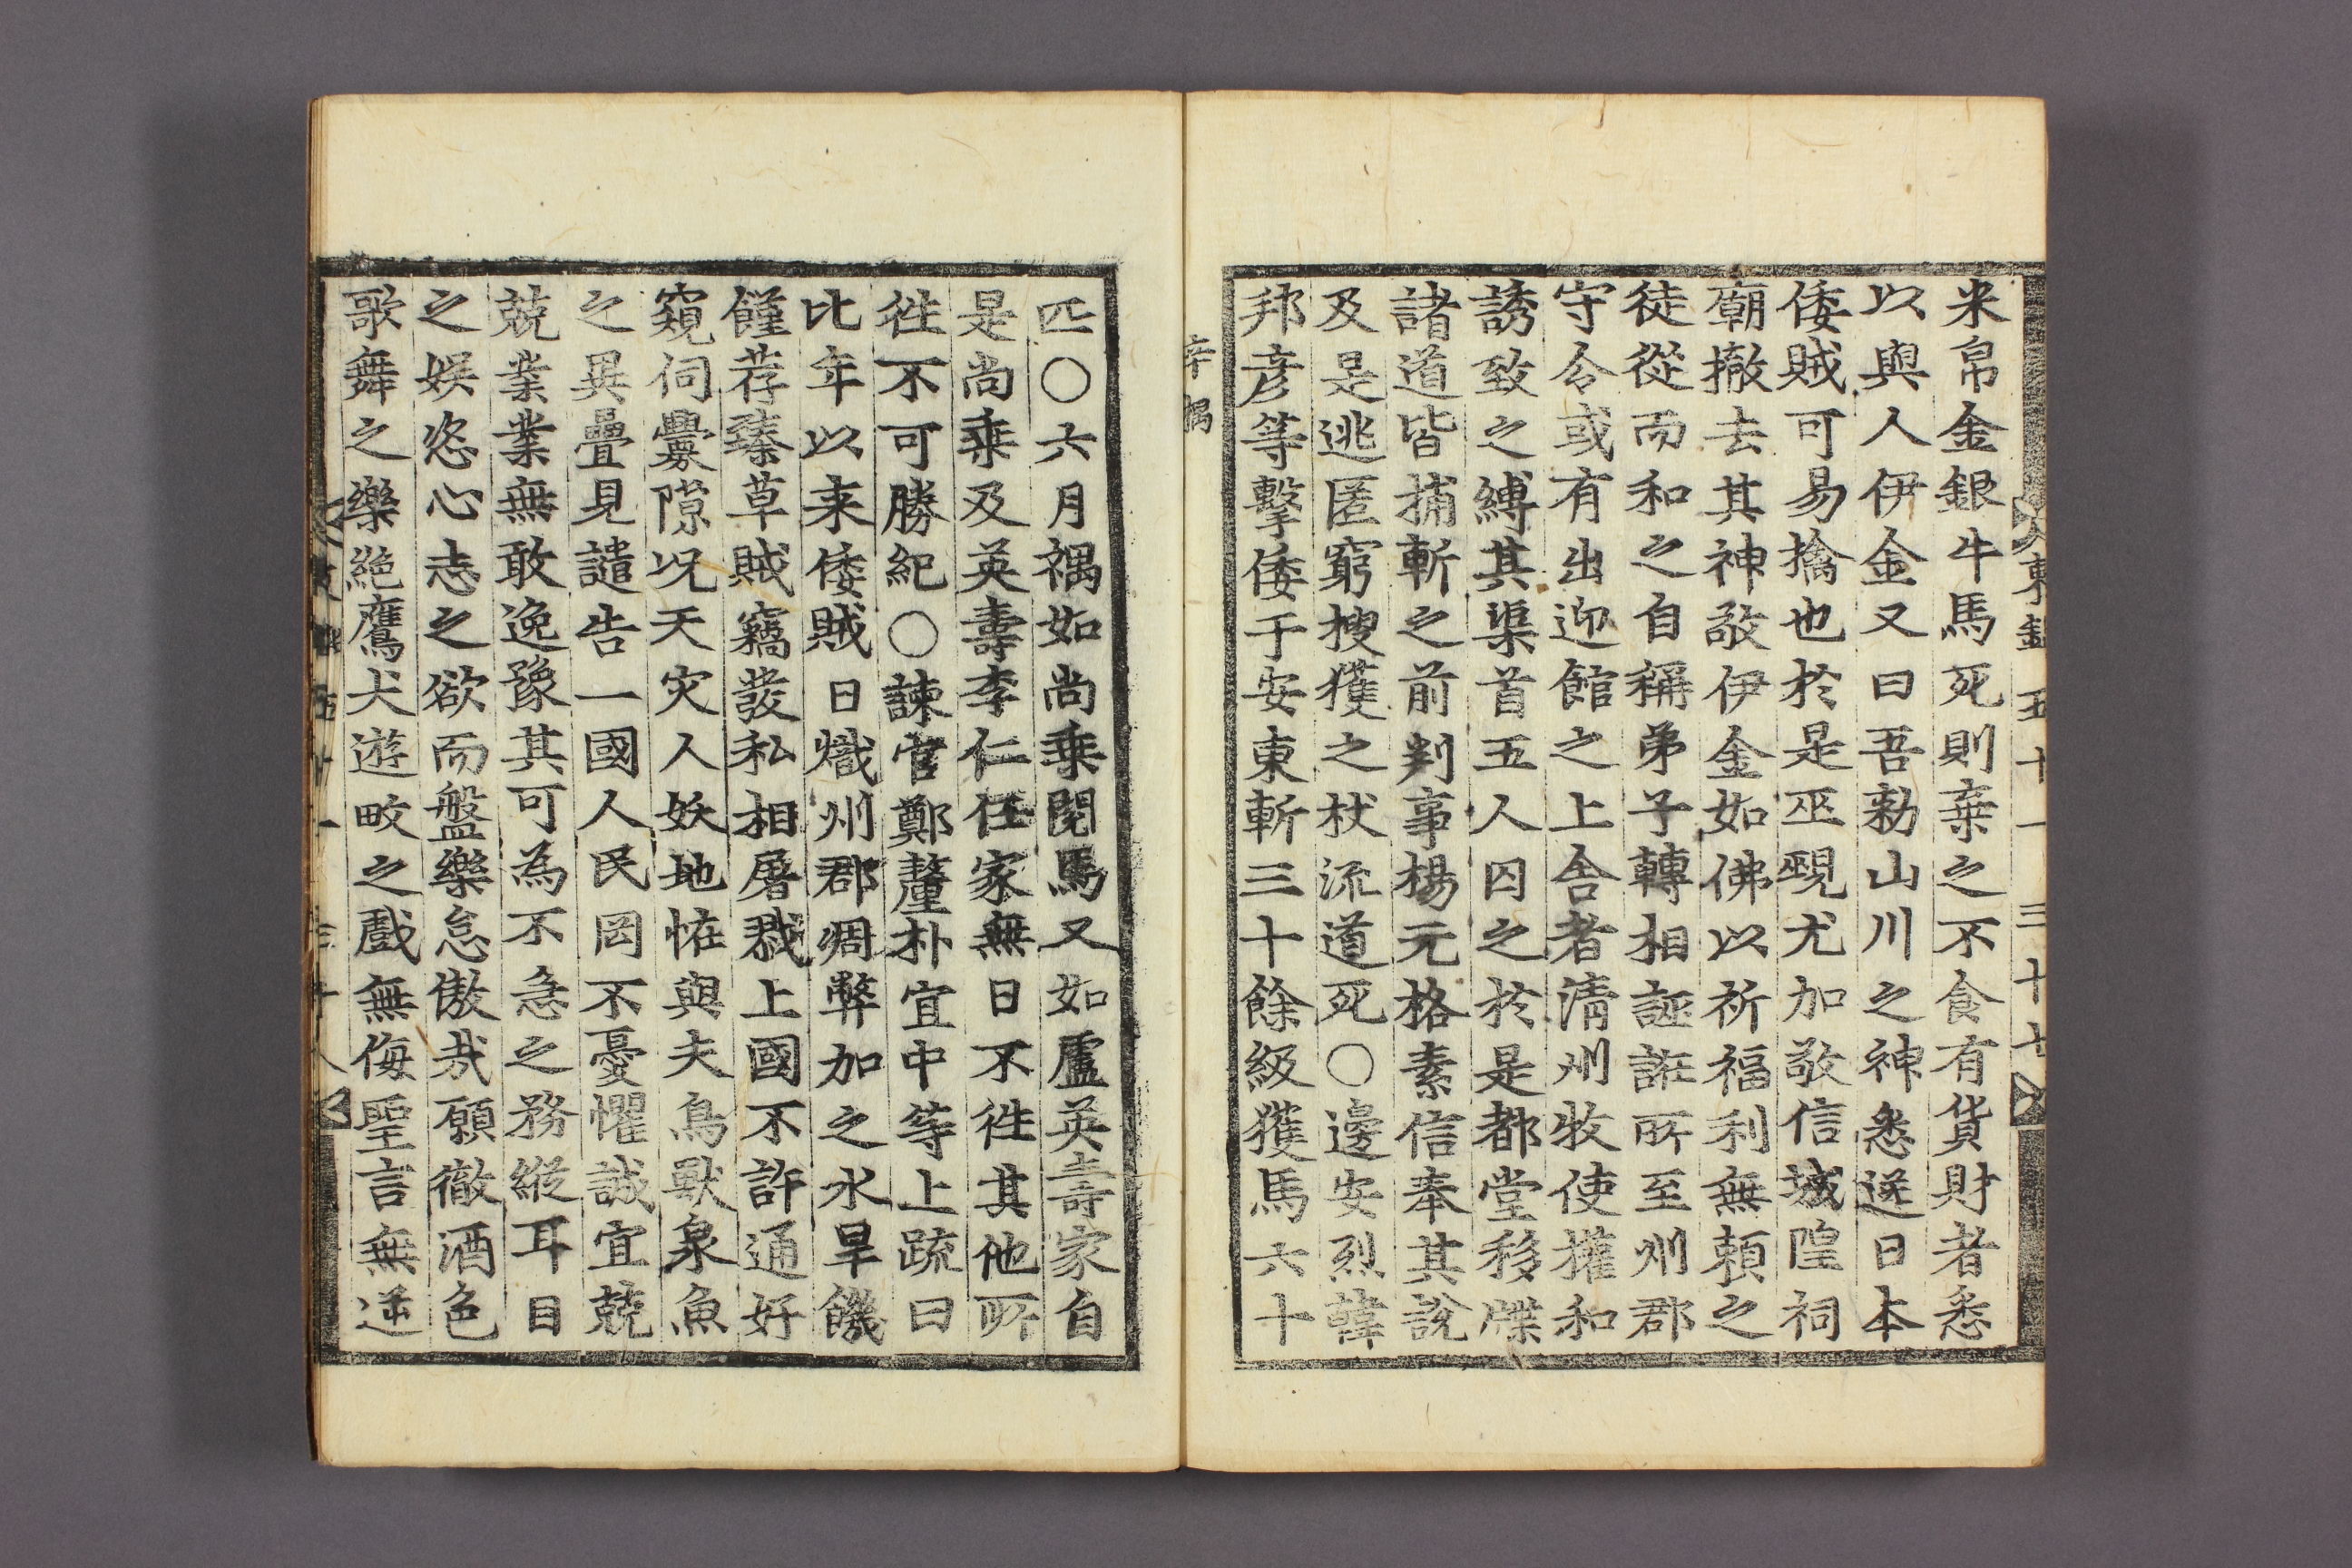 米帛金銀牛馬死則棄之不食有貨財者悉
以與人伊金又曰吾勑山川之神悉送日本
倭賊可易擒也於是巫覡尤加敬信城隍祠
廟撤去其神敬伊金如佛以祈福利無頼之
徒從而和之自稱弟子轉相誣誑所至州郡
守令或有出迎館之上舍者清州牧使權和
誘致之縛其渠首五人囚之於是都堂移牒
諸道皆捕斬之前判事楊元格素信奉其說
及是逃匿窮搜獲之杖流道死○邊安烈韓
邦彦等擊倭于安東斬三十餘級獲馬六十
辛禑
匹○六月禑如尚乘閱馬又如盧英壽家自
是尚乘及英壽李仁任家無日不徃其他所
徃不可勝紀○諫官鄭釐朴宜中等上疏曰
比年以来倭賊日熾州郡凋弊加之水旱饑
饉荐臻草賊竊發私相屠戮上國不許通好
窺伺釁隙况天灾人妖地恠與夫鳥獸泉魚
之異疊見譴告一國人民罔不憂懼誠宜兢
兢業業無敢逸豫其可為不急之務縱耳目
之娱恣心志之欲而盤樂怠傲㢤願徹酒色
歌舞之樂絶鷹犬遊畋之戲無侮聖言無逆